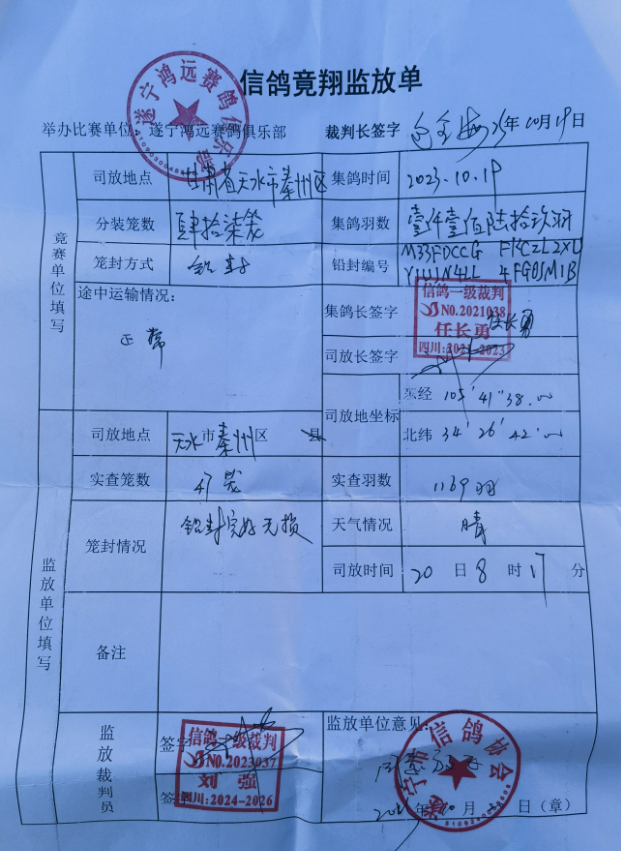 信鸽竟翔监放单
举办比赛单位：遂宁鸿远赛鸽俱乐部 裁判长签字 年10月19日
遂宁鸿远赛鸽俱乐部
竟赛单位填写
司放地点 甘肃省天水市秦州区 集鸽时间 2023.10.19
分装笼数 肆拾柒笼 集鸽羽数 壹仟壹佰陆拾玖羽
笼封方式 铅封 铅封编号 M33FDCCG
途中运输情况：
正常
集鸽长签字 任长勇
信鸽一级裁判
NO.2021038
任长勇
四川:2021-2023
司放长签字
司放地坐标 东经 105′41″38.00
北纬 34′26′42′00
监放单位填写
司放地点 天水市秦州区 县
实查笼数 47笼 实查羽数 1169羽
笼封情况 铅封完好无损 天气情况 晴
司放时间 20日8时17分
备注
监放裁判员
签字
信鸽一级裁判
NO.2023037
刘强
四川:2024-2026
监放单位意见：
遂宁市信鸽协会
年 月 日（章）